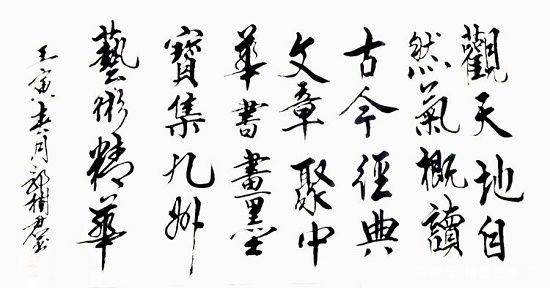 觀天地自
然氣概讀
古今經典
文章聚中
華書畫墨
寶集九州
藝術精華
壬寅春月郭樹